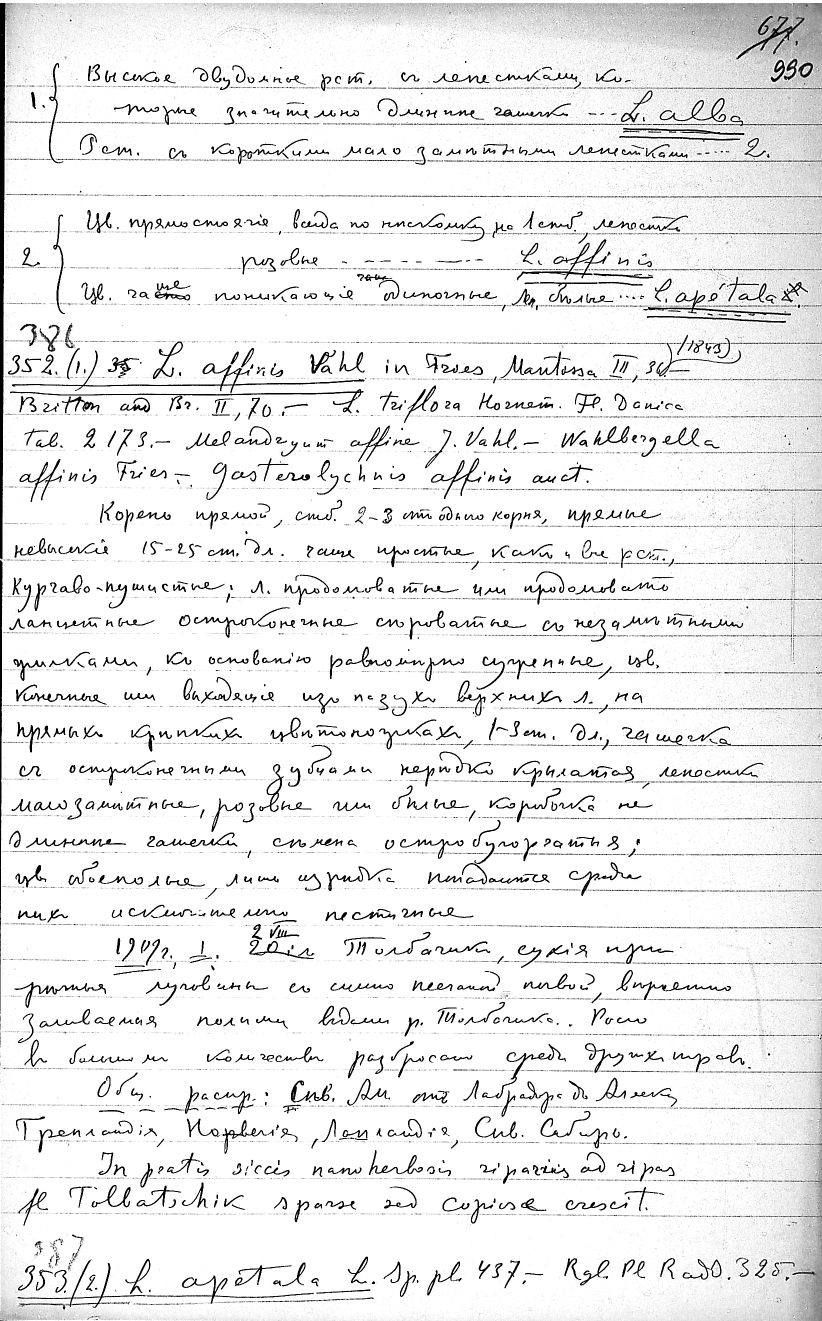 677.
990
1. Высокое двудомное рст. съ лепестками, ко-
торые значительно длиннее чашечки ---- L. alba
Рст. съ короткими мало замѣтными лепестками ..... 2.
2. Цв. прямостоячіе, всегда по нѣскольку на 1 стб., лепестки
розовые - - - - - - L. affinis
Цв. чаще поникающіе чаще одиночные, лп. бѣлые .... L. apétala
386
352.(1.) 35 L. affinis Vahl in Fries, Mantissa III, 36.— (1843)
Britton and Br. II, 70.— L. triflora Hornem. Fl. Danica
tab. 2173.— Melandryum affine J. Vahl.— Wahlbergella
affinis Fries.— Gasterolychnis affinis auct.
Корень прямой, стб. 2-3 отъ одного корня, прямые
невысокіе 15-25 cm. дл. чаще простые, какъ и все рст.,
курчаво-пушистые; л. продолговатые или продолговато
ланцетные остроконечные сѣроватые съ незамѣтными
жилками, къ основанію равномѣрно суженные, цв.
конечные или выходящіе изъ пазухъ верхнихъ л., на
прямыхъ крѣпкихъ цвѣтоножкахъ, 1-3 cm. дл., чашечка
съ остроконечными зубцами нерѣдко крылатая, лепестки
малозамѣтные, розовые или бѣлые, коробочка не
длиннее чашечки, сѣмена остробугорчатыя;
цв. обоеполые, лишь изрѣдка попадаются среди
нихъ исключительно пестичные
1909г., 1. 2 VIII Толбачикъ, сухія при
луговины съ песчаной почвой, вѣроятно
заливаемыя полыми водами р. Толбачика. Росло
въ большомъ количествѣ разбросано среди другихъ травъ.
Общ. распр.: Сѣв. Ам. отъ Лабрадора до Аляски,
Гренландія, Норвегія, Лапландія, Сѣв. Сибирь.
In pratis siccis nanoherbosis ripariis ad ripas
fl Tolbatschik sparse sed copiose crescit.
387
353.(2.) L. apétala L. Sp. pl. 437.— Rgl. Pl. Radd. 325.—